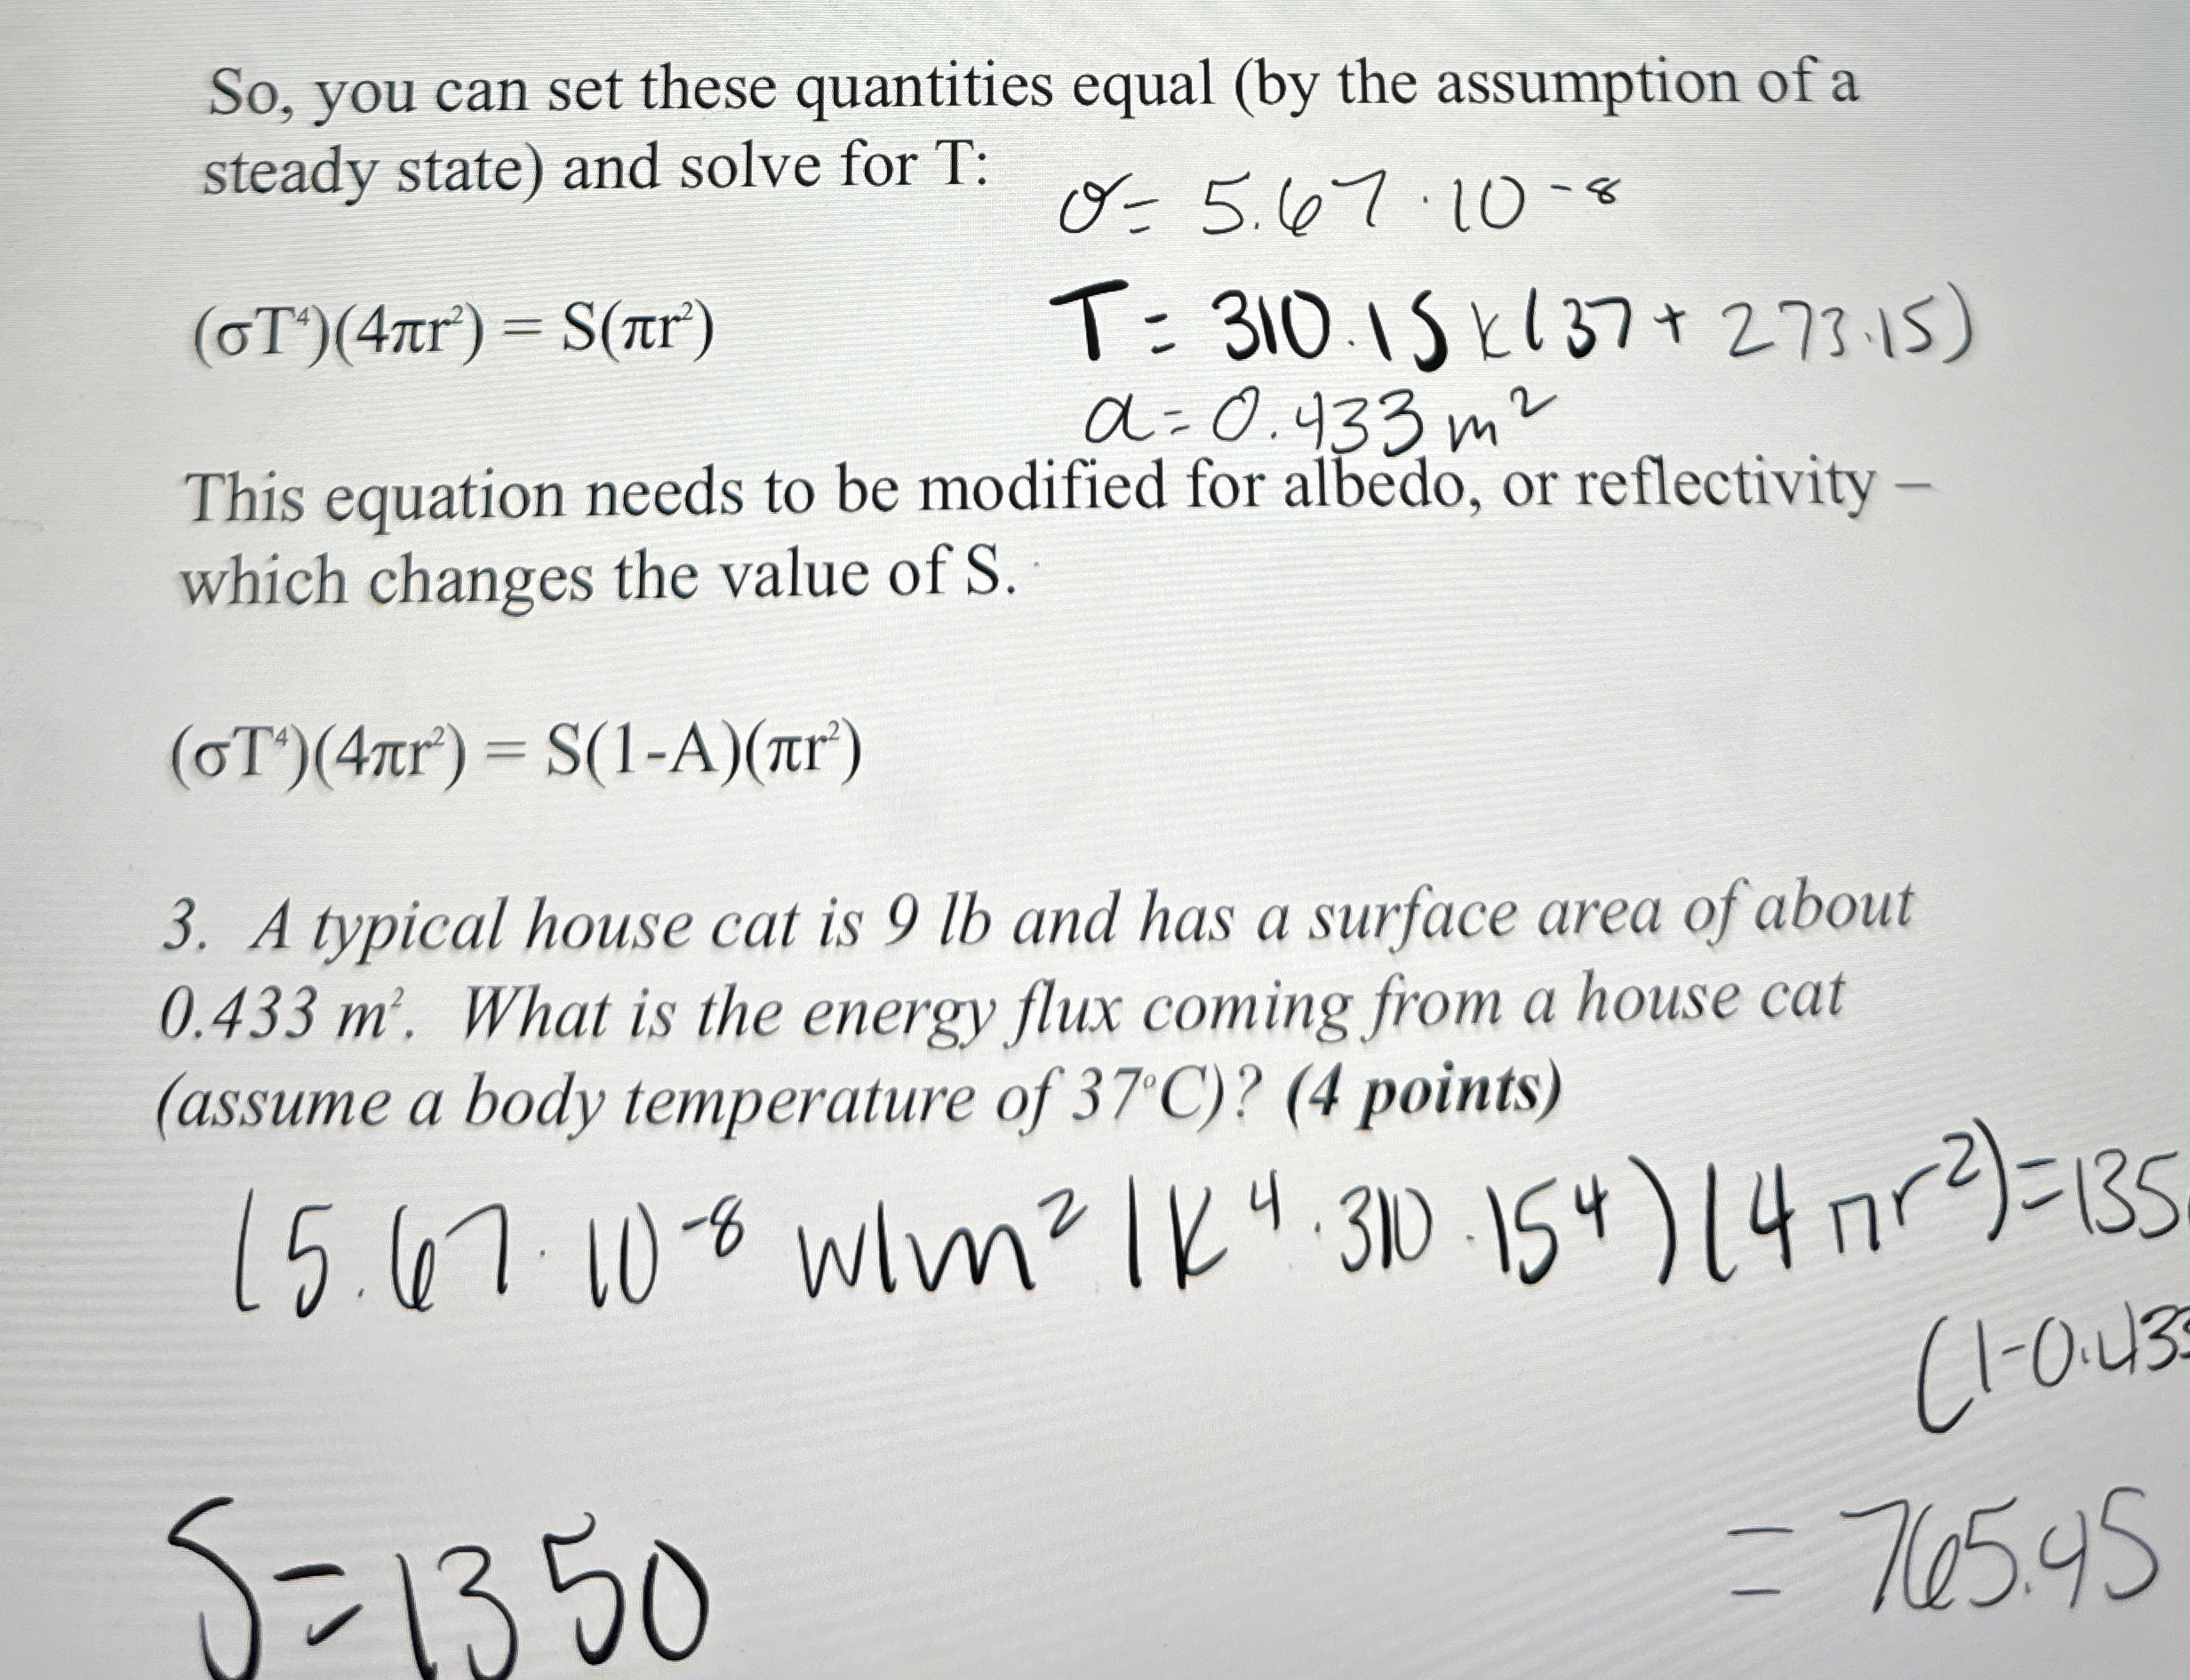 So, you can set these quantities equal (by the assumption of a
steady state) and solve for T:
σ= 5.67 · 10⁻⁸
(σT⁴)(4πr²) = S(πr²)
T = 310.15 K (37 + 273.15)
a = 0.433 m²
This equation needs to be modified for albedo, or reflectivity –
which changes the value of S.
(σT⁴)(4πr²) = S(1-A)(πr²)
3. A typical house cat is 9 lb and has a surface area of about
0.433 m². What is the energy flux coming from a house cat
(assume a body temperature of 37°C)? (4 points)
(5.67 · 10⁻⁸ w/m²/K⁴ · 310.15⁴)(4πr²)=135
(1-0.433
= 765.45
S=1350